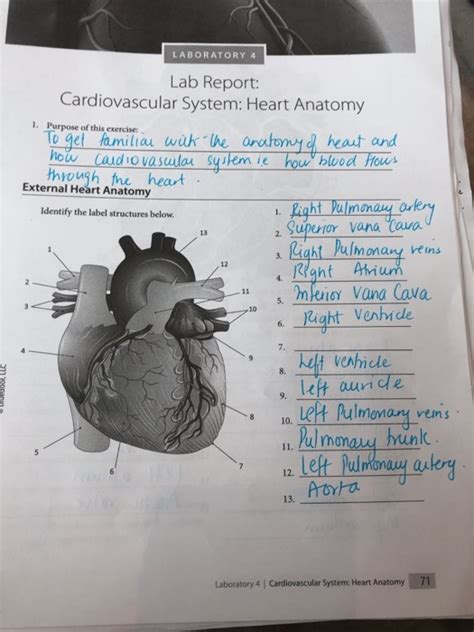 LABORATORY 4
Lab Report:
Cardiovascular System: Heart Anatomy
1. Purpose of this exercise:
To get familiar with the anatomy of heart and
how cardiovascular system ie how blood flows
through the heart.
External Heart Anatomy
Identify the label structures below.
1. Right Pulmonary artery
2. Superior Vana Cava
3. Right Pulmonary veins
4. Right Atrium
5. Inferior Vana Cava
6. Right Ventricle
7.
8. Left Ventricle
9. left auricle
10. Left Pulmonary veins.
11. Pulmonary trunk.
12. Left Pulmonary artery.
13. Aorta
13
1
12
2
11
3
10
4
9
8
5
6
7
Laboratory 4 | Cardiovascular System: Heart Anatomy 71